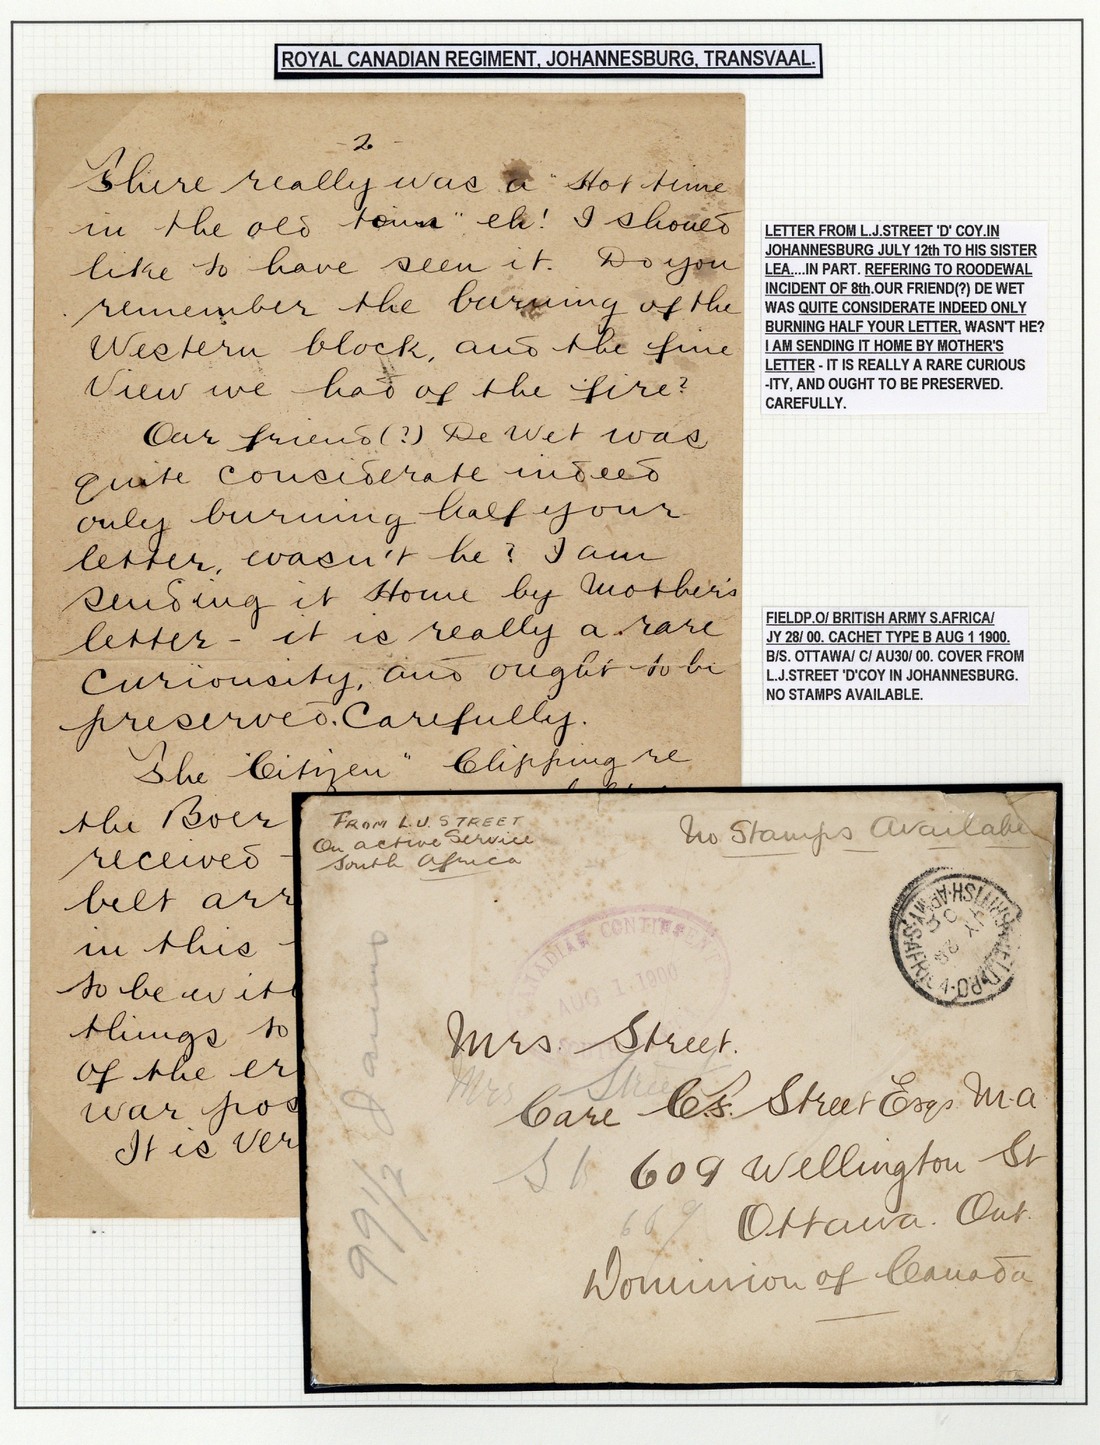 ROYAL CANADIAN REGIMENT, JOHANNESBURG, TRANSVAAL.
- 2 -
There really was a "Hot time
in the old town" eh! I should
like to have seen it. Do you
remember the burning of the
Western block, and the fine
View we had of the fire?
Our friend(?) De Wet was
quite considerate indeed
only burning half your
letter, wasn't he? I am
sending it Home by Mother's
letter - it is really a rare
curiousity, and ought to be
preserved. Carefully.
The "Citizen" Clipping re
the Boer
received -
belt arr
in this
to be wit
things to
of the er
war pos
It is ver
LETTER FROM L.J.STREET 'D' COY.IN
JOHANNESBURG JULY 12th TO HIS SISTER
LEA....IN PART. REFERING TO ROODEWAL
INCIDENT OF 8th.OUR FRIEND(?) DE WET
WAS QUITE CONSIDERATE INDEED ONLY
BURNING HALF YOUR LETTER, WASN'T HE?
I AM SENDING IT HOME BY MOTHER'S
LETTER - IT IS REALLY A RARE CURIOUS
-ITY, AND OUGHT TO BE PRESERVED.
CAREFULLY.
FIELDP.O/ BRITISH ARMY S.AFRICA/
JY 28/ 00. CACHET TYPE B AUG 1 1900.
B/S. OTTAWA/ C/ AU30/ 00. COVER FROM
L.J.STREET 'D'COY IN JOHANNESBURG.
NO STAMPS AVAILABLE.
FROM L.J. STREET
On active Service
South Africa
No Stamps Available
FIELD P.O. BRITISH ARMY S. AFRICA
JY 28
00
CANADIAN CONTINGENT
AUG 1 1900
Mrs. Street.
Mrs Street
Care C.S. Street Esqr M.A
609 Wellington St
609
Ottawa. Ont.
Dominion of Canada
99 1/2